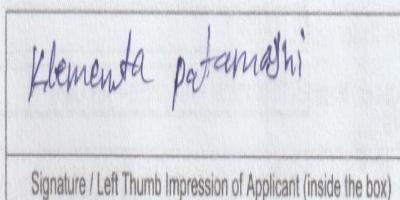 Klementa patamashi
Signature / Left Thumb Impression of Applicant (inside the box)